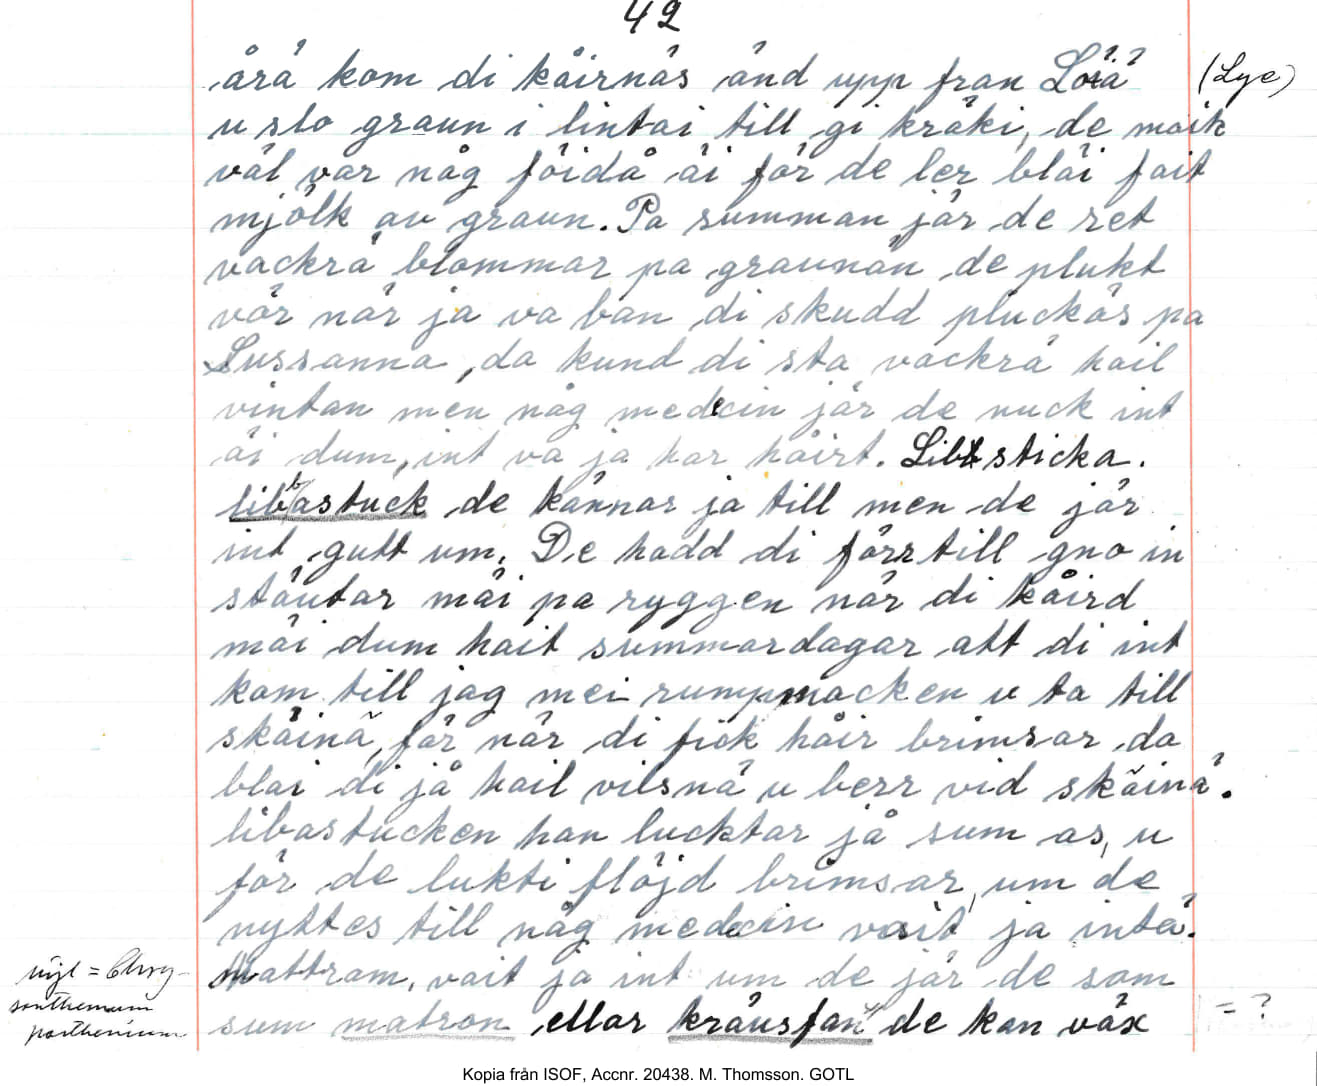 42
årå kom di kåirnås ånd upp fran Loiå (Lye)
u slo graun i lintai till gi kråki, de moik
vål var någ föidå åi får de ler blåi fait
mjölk av graun. Pa summan jår de ret
vackrå blommar pa graunån de plukt
vör når ja va ban di skudd pluckås pa
Sussanna, da kund di sta vackrå hail
vintan men någ medicin jår de nuck int
åi dum, int va ja har håirt. Libsticka.
libbastuck de kännar ja till men de jår
int gutt um. De hadd di förr till gno in
ståutar måi pa ryggen når di kåird
måi dum hait summardagar att di int
kam till jag mei rumpmacken u ta till
skåinå, får når di fick håir brimsar da
blai di jå hail vilsnå u berr vid skåinå.
libastucken han lucktar jå sum as, u
för de lukti flöjd brimsar, um de
nyttes till någ medicin vait ja intå.
Mattram, vait ja int um de jår de som
sum matron ellar kråusfan de kan våx
= ?
nyl = Chry-
santhemum
parthenium
Kopia från ISOF, Accnr. 20438. M. Thomsson. GOTL